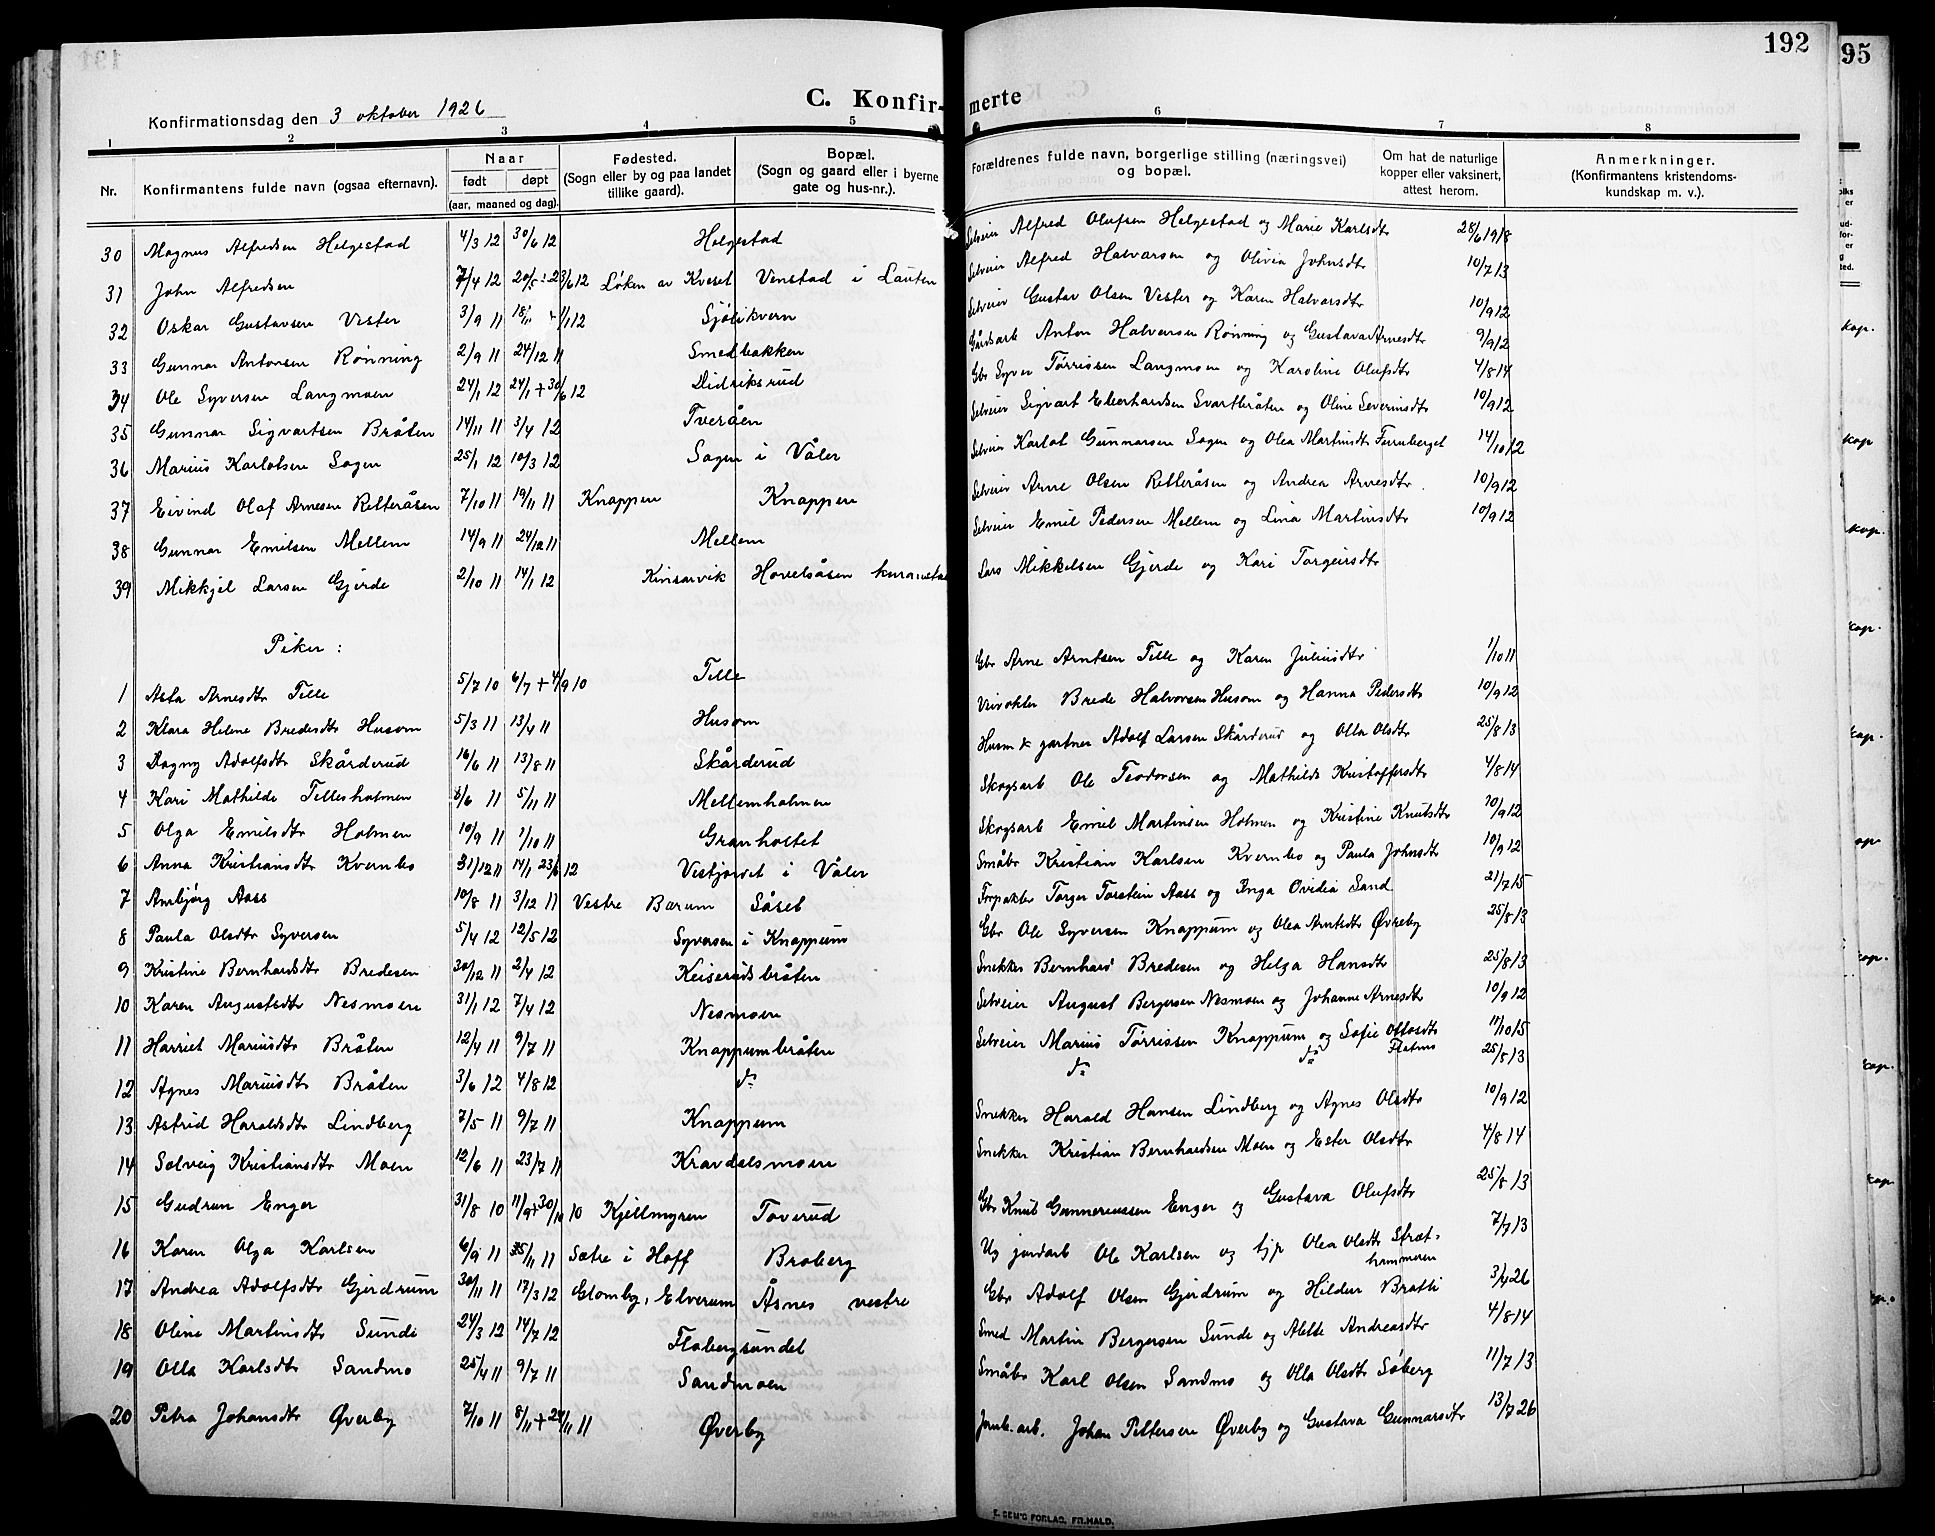 192
95
C. Konfir-merte
Konfirmationsdag den 3 oktober 1926
1 2 3 4 5 6 7 8
Nr. Konfirmantens fulde navn (ogsaa efternavn). Naar født døpt (aar, maaned og dag). Fødested. (Sogn eller by og paa landet tillike gaard). Bopæl. (Sogn og gaard eller i byerne gate og hus-nr.). Forældrenes fulde navn, borgerlige stilling (næringsvei) og bopæl. Om hat de naturlige kopper eller vaksinert, attest herom. Anmerkninger. (Konfirmantens kristendoms-kundskap m. v.).
30 Magnus Alfredsen Helgestad 4/3 12 30/6 12 Helgestad Selveier Alfred Olufsen Helgestad og Marie Karlsdtr 28/6 1918
31 John Alfredsen 7/4 12 Løken av Kveset Venstad i Lauten Selveier Alfred Halvarsen og Olivia Johnsdtr 10/7 13
32 Oskar Gustavsen Vester 3/9 11 Sjølikvern Selveier Gustav Olsen Vester og Karen Halvarsdtr 10/9 12
33 Gunnar Antonsen Rønning 2/9 11 24/12 11 Smedbakken Gårdsarb Anton Halvorsen Rønning og Gustava Arnesdtr 9/9 12
34 Ole Syversen Langmoen 24/1 12 24/1 + 30/6 12 Didriksrud Gbr Syver Tørrissen Langmoen og Karoline Olufsdtr 4/8 14
35 Gunnar Sigvartsen Bråten 14/11 11 3/4 12 Tveråen Selveier Sigvart Eberhardsen Svartbråten og Oline Severinsdtr 10/9 12
36 Marius Karlotsen Sagen 25/1 12 10/3 12 Sagen i Våler Selveier Karlot Gunnarsen Sagen og Olea Martinsdtr Furuberget 14/10 12
37 Eivind Olaf Arnesen Retteråsen 7/10 11 19/11 11 Knappen Knappen Selveier Arne Olsen Retteråsen og Andrea Arnesdtr. 10/9 12
38 Gunnar Emilsen Mellem 14/9 11 24/12 11 Mellem Selveier Emil Pedersen Mellem og Lina Martinsdtr 10/9 12
39 Mikkjel Larsen Gjerde 2/10 11 14/1 12 Kinsarvik Hovelsåsen Lars Mikkelsen Gjerde og Kari Torgeirsdtr
Piker :
1 Asta Arnesdtr Tille 5/7 10 6/7 + 4/9 10 Tille Gbr Arne Arntsen Tille og Karen Juliusdtr 1/10 11
2 Klara Helene Bredesdtr Husom 5/3 11 13/4 11 Husom Brede Halvorsen Husom og Hanna Pedersdtr 10/9 12
3 Dagny Adolfsdtr Skårderud 16/6 11 13/8 11 Skårderud Husm & gartner Adolf Larsen Skårderud og Olla Olsdtr 25/8 13
4 Kari Mathilde Tillesholmen 8/6 11 5/11 11 Mellemholmen Skogsarb Ole Teodorsen og Mathilde Kristoffersdtr 4/8 14
5 Olga Emilsdtr Holmen 10/9 11 1/10 11 Granholtet Skogsarb Emil Martinsen Holmen og Kristine Knutsdtr 10/9 12
6 Anna Kristiansdtr Kvernbo 31/12 11 14/1 23/6 12 Vestjordet i Våler Småbr Kristian Karlsen Kvernbo og Paula Johnsdtr 10/9 12
7 Ambjørg Aass 10/8 11 3/12 11 Vestre Bærum Såset Forpakter Torger Torstein Aass og Inga Ovidia Sand 21/7 15
8 Paula Olsdtr Syversen 5/4 12 12/5 12 Syversen i Knappum Gbr Ole Syversen Knappum og Olea Arntsdtr Øvreby 25/8 13
9 Kristine Bernhardsdtr Bredesen 30/12 11 2/4 12 Keiserudsbråten Snekker Bernhard Bredesen og Helga Hansdtr 25/8 13
10 Karen Augustsdtr Nesmoen 31/1 12 7/4 12 Nesmoen Selveier August Bergersen Nesmoen og Johanne Arnesdtr 10/9 12
11 Harriet Mariusdtr Bråten 12/4 11 9/7 11 Knappumbråten Selveier Marius Tørrissen Knappum og Sofie Ottosdtr Flatmo 11/10 15
12 Agnes Mariusdtr Bråten 3/6 12 4/8 12 do do do 25/8 13
13 Astrid Haraldsdtr Lindberg 7/5 11 9/7 11 Knappum Snekker Harald Hansen Lindberg og Agnes Olsdtr 10/9 12
14 Solveig Kristiansdtr Moen 12/6 11 23/7 11 Kravdalsmoen Snekker Kristian Bernhardsen Moen og Ester Olsdtr 4/8 14
15 Gudrun Enger 31/8 10 11/9 + 30/10 10 Kjellmyren Toverud Gbr Knut Gunneriussen Enger og Gustava Olufsdtr 25/8 13
16 Karen Olga Karlsen 6/9 11 Sætre i Hoff Broberg Ug jordarb Ole Karlsen og tjp Olea Olsdtr Stræt-hammeren 7/7 13
17 Andrea Adolfsdtr Gjerdrum 30/11 11 17/3 12 Glomby, Elverum Åsnes vestre Gbr Adolf Olsen Gjerdrum og Hildur Bratli 3/4 26
18 Oline Martinsdtr Sunde 24/3 12 14/7 12 Flabergsundet Smed Martin Bergersen Sunde og Alette Andreasdtr 4/8 14
19 Olla Karlsdtr Sandmo 25/4 11 9/7 11 Sandmoen Småbr Karl Olsen Sandmo og Olla Olsdtr Søberg 11/7 13
20 Petra Johansdtr Øverby 7/10 11 8/11 + 24/11 11 Øverby Jernb.arb. Johan Pettersen Øverby og Gustava Gunnarsdtr 13/7 26
E. SEM'S FORLAG, FR.HALD.